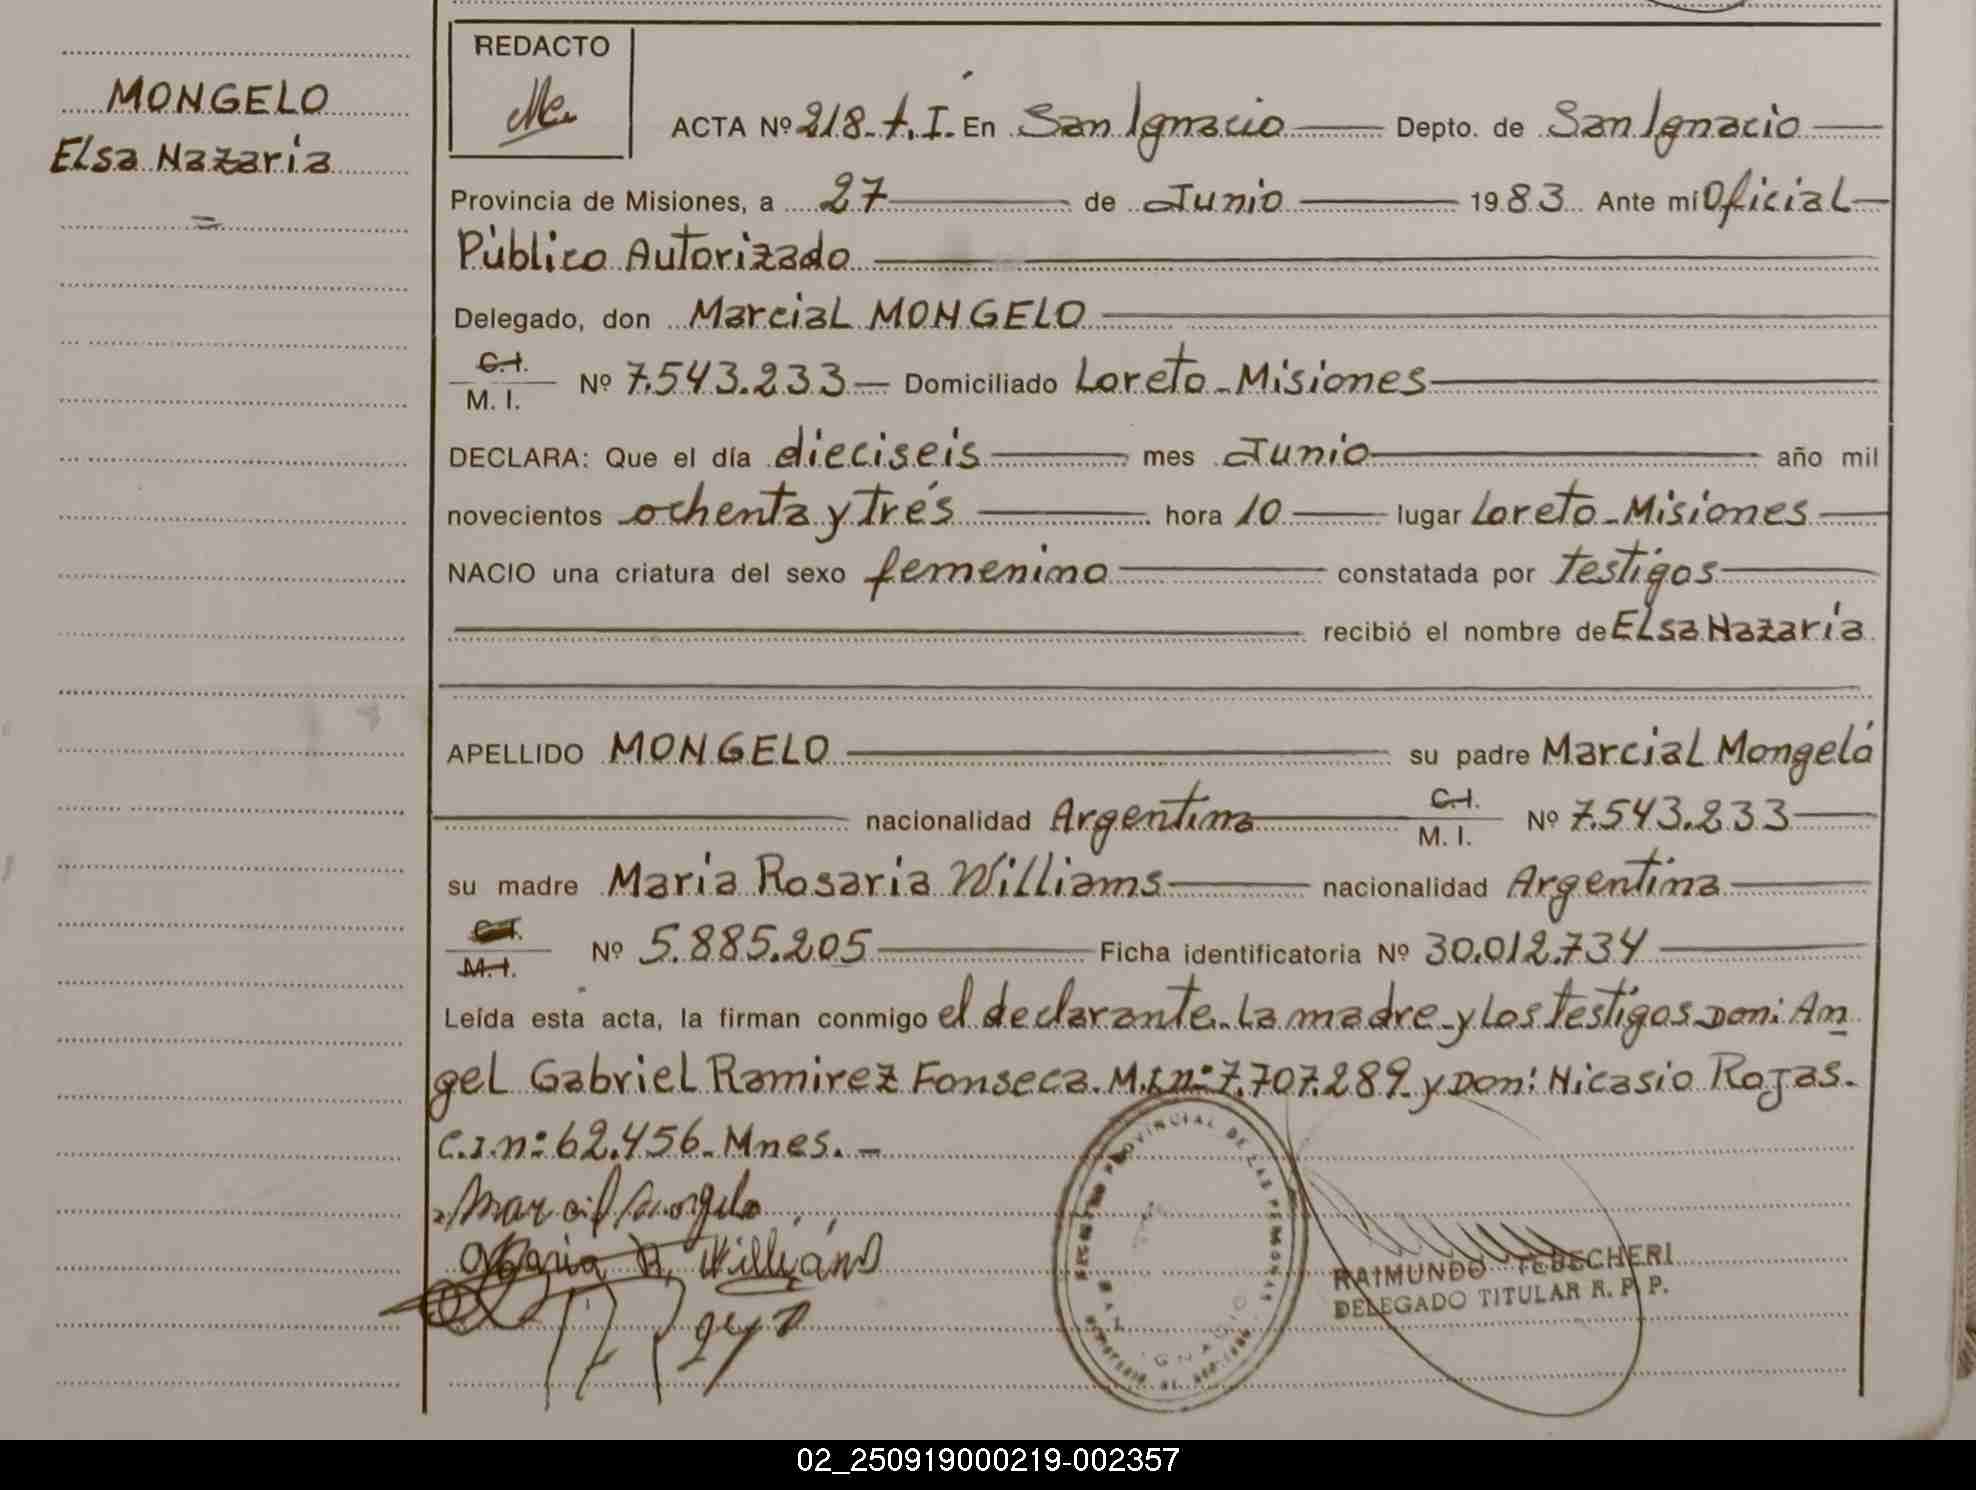 MONGELO
Elsa Nazaria
=
REDACTO
ACTA Nº 218-t.I. En San Ignacio Depto. de San Ignacio
Provincia de Misiones, a 27 de Junio 1983 Ante mí Oficial
Público Autorizado
Delegado, don Marcial MONGELO
C.I.
M. I. Nº 7.543.233 Domiciliado Loreto - Misiones
DECLARA: Que el día dieciseis mes Junio año mil
novecientos ochenta y trés hora 10 lugar Loreto - Misiones
NACIO una criatura del sexo femenino constatada por testigos
recibió el nombre de Elsa Nazaria
APELLIDO MONGELO su padre Marcial Mongeló
nacionalidad Argentina C.I. M. I. Nº 7.543.233
su madre Maria Rosaria Williams nacionalidad Argentina
C.I.
M.I. Nº 5.885.205 Ficha identificatoria Nº 30.012.734
Leída esta acta, la firman conmigo el declarante - La madre - y Los testigos Don: An
gel Gabriel Ramirez Fonseca. M.I.nº: 7.707.289 - y Don: Nicasio Rojas.
C.I.nº: 62.456 - Mnes. -
Maria R. Williams
PROVINCIAL DE LAS PERSONAS
RAIMUNDO TEBECHERI
DELEGADO TITULAR R. P. P.
02_250919000219-002357